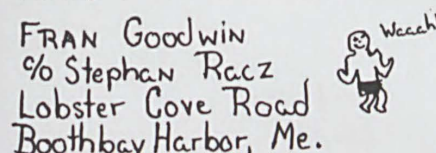 FRAN GoodwiN
c/o StephaN Racz
Lobster Cove Road
Boothbay Harbor, Me.
Waaah!